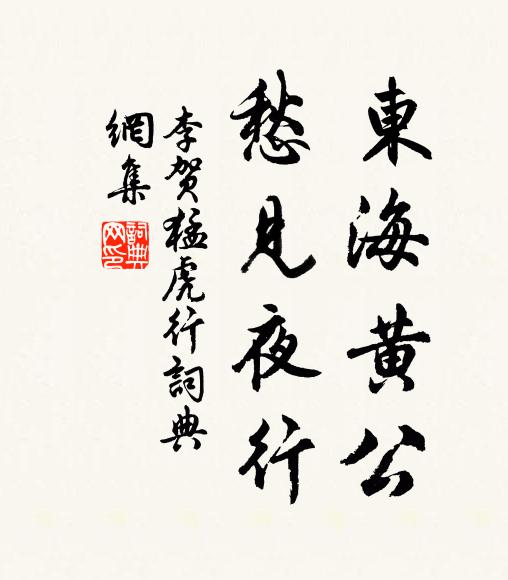 東海黃公
愁見夜行
李賀猛虎行詞典
網集
詞典
网印